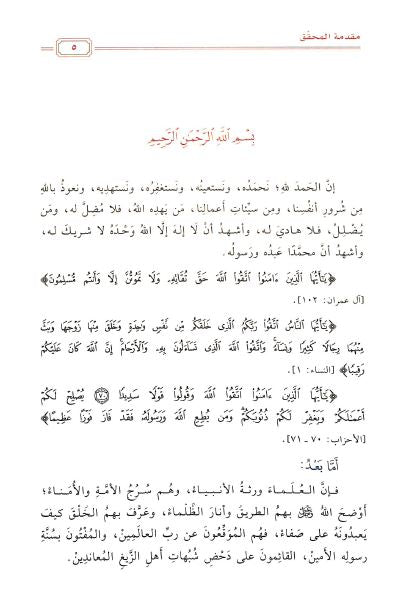 مقدمة المحقّق
٥
بِسْمِ اللهِ الرَّحْمَنِ الرَّحِيمِ
إنَّ الحَمدَ للهِ؛ نَحمَدُه، ونَستعينُه، ونَستغفِرُه، ونَستهدِيه، ونعوذُ باللهِ
مِن شُرورِ أنفُسِنا، ومِن سيِّئاتِ أعمالِنا، مَن يَهدِه اللهُ، فلا مُضِلَّ له، ومَن
يُضْلِلْ، فلا هاديَ له، وأشهدُ أنْ لا إلهَ إلَّا اللهُ وَحْدَهُ لا شريكَ له،
وأشهدُ أنَّ محمَّدًا عَبدُه ورَسولُه.
﴿يَٰٓأَيُّهَا ٱلَّذِينَ ءَامَنُوا۟ ٱتَّقُوا۟ ٱللَّهَ حَقَّ تُقَاتِهِۦ وَلَا تَمُوتُنَّ إِلَّا وَأَنتُم مُّسْلِمُونَ﴾
[آل عمران: ١٠٢].
﴿يَٰٓأَيُّهَا ٱلنَّاسُ ٱتَّقُوا۟ رَبَّكُمُ ٱلَّذِى خَلَقَكُم مِّن نَّفْسٍ وَٰحِدَةٍ وَخَلَقَ مِنْهَا زَوْجَهَا وَبَثَّ
مِنْهُمَا رِجَالًا كَثِيرًا وَنِسَآءً ۚ وَٱتَّقُوا۟ ٱللَّهَ ٱلَّذِى تَسَآءَلُونَ بِهِۦ وَٱلْأَرْحَامَ ۚ إِنَّ ٱللَّهَ كَانَ عَلَيْكُمْ
رَقِيبًا﴾ [النساء: ١].
﴿يَٰٓأَيُّهَا ٱلَّذِينَ ءَامَنُوا۟ ٱتَّقُوا۟ ٱللَّهَ وَقُولُوا۟ قَوْلًا سَدِيدًا ۝٧٠ يُصْلِحْ لَكُمْ
أَعْمَٰلَكُمْ وَيَغْفِرْ لَكُمْ ذُنُوبَكُمْ ۗ وَمَن يُطِعِ ٱللَّهَ وَرَسُولَهُۥ فَقَدْ فَازَ فَوْزًا عَظِيمًا﴾
[الأحزاب: ٧٠ ـ ٧١].
أمَّا بَعدُ:
فـإنَّ العُلَـمـاءَ ورثـةُ الأنبـيـاءِ، وهُـم سُـرُجُ الأمَّـةِ والأُمَنـاءُ؛
أَوْضَحَ اللهُ ﷻ بهِمُ الطريقَ وأنارَ الظَّلْماءَ، وعَرَّفَ بهمُ الخَلْقَ كيفَ
يَعبدُونَهُ على صَفاءٍ، فهُم المُوَقِّعونَ عن ربِّ العالَمِينَ، والمُفْتُونَ بسُنَّةِ
رسولِه الأمينِ، القائِمونَ على دَحْضِ شُبُهاتِ أهلِ الزَّيغِ المُعاندِينَ.